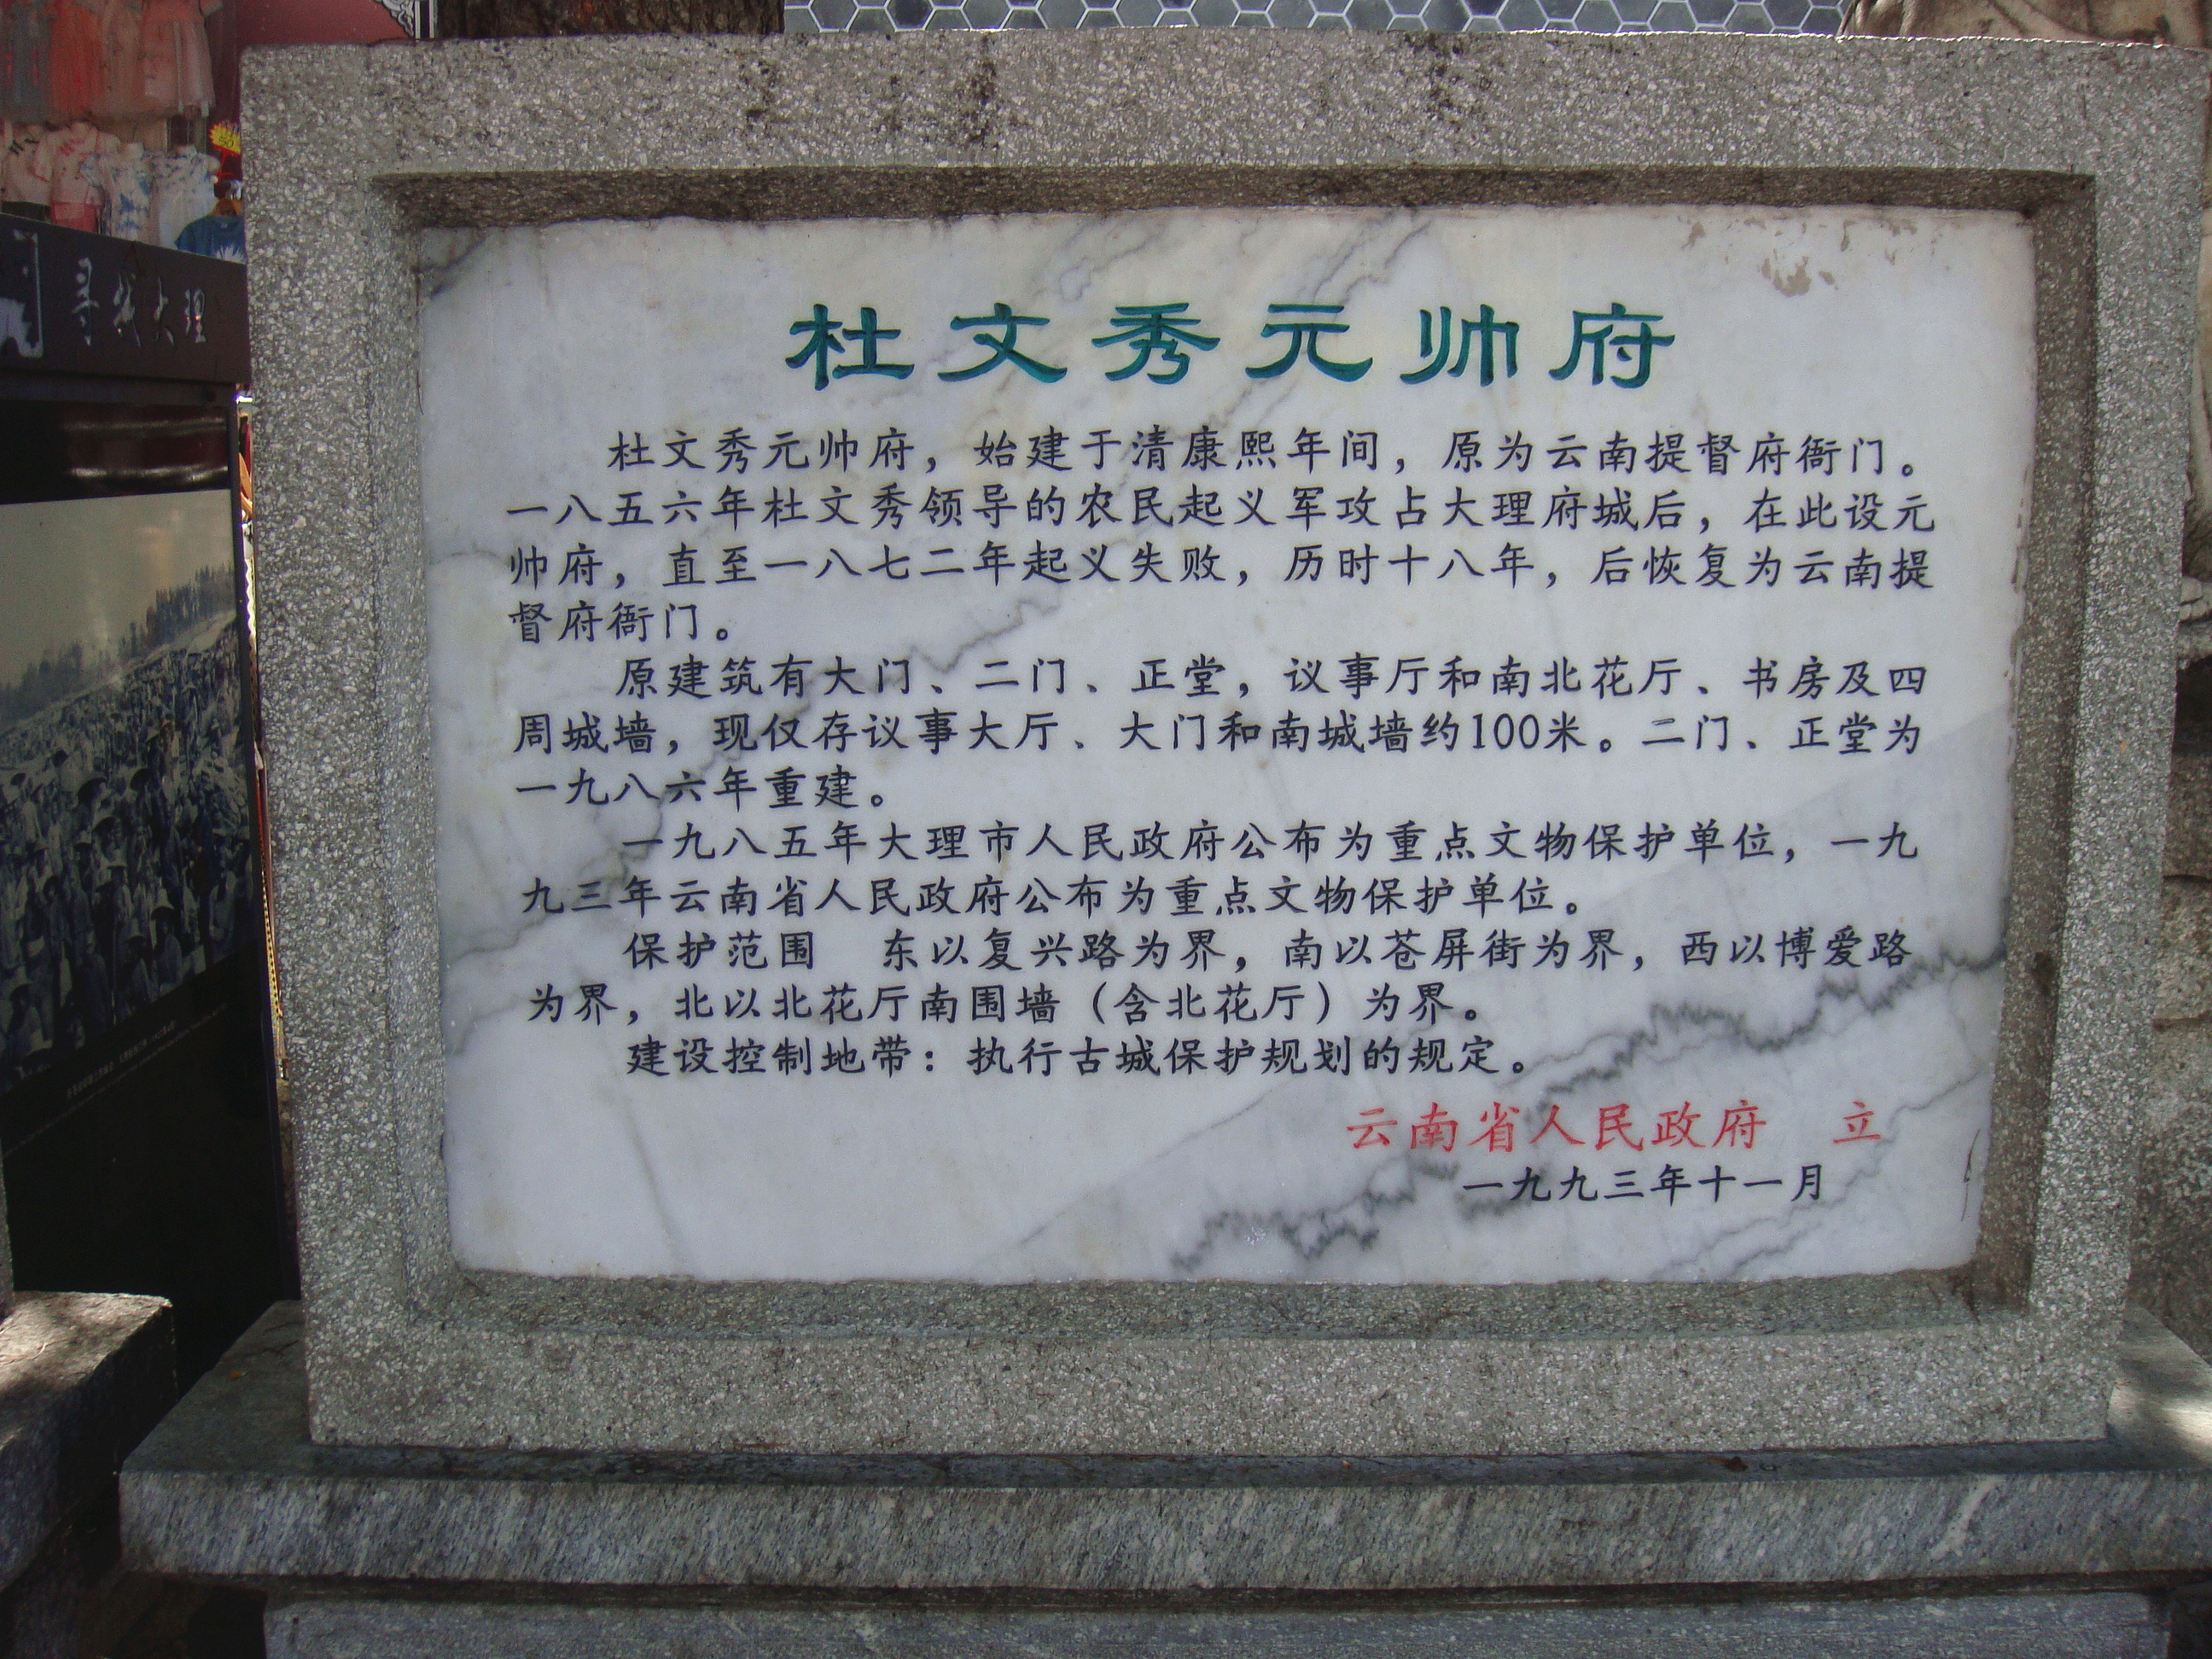 杜文秀元帅府
杜文秀元帅府，始建于清康熙年间，原为云南提督府衙门。
一八五六年杜文秀领导的农民起义军攻占大理府城后，在此设元
帅府，直至一八七二年起义失败，历时十八年，后恢复为云南提
督府衙门。
原建筑有大门、二门、正堂，议事厅和南北花厅、书房及四
周城墙，现仅存议事大厅、大门和南城墙约100米。二门、正堂为
一九八六年重建。
一九八五年大理市人民政府公布为重点文物保护单位，一九
九三年云南省人民政府公布为重点文物保护单位。
保护范围　东以复兴路为界，南以苍屏街为界，西以博爱路
为界，北以北花厅南围墙（含北花厅）为界。
建设控制地带：执行古城保护规划的规定。
云南省人民政府　立
一九九三年十一月
大理